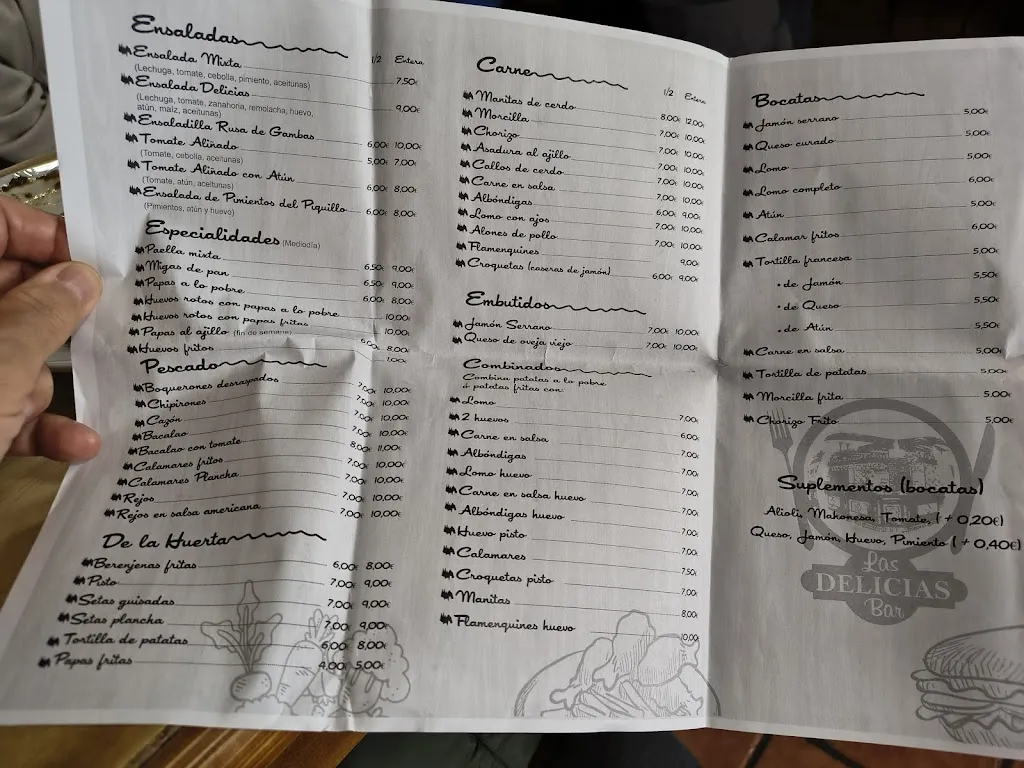 Ensaladas
1/2 Entera
Ensalada Mixta 7,50€
(Lechuga, tomate, cebolla, pimiento, aceitunas)
Ensalada Delicias 9,00€
(Lechuga, tomate, zanahoria, remolacha, huevo,
atún, maíz, aceitunas)
Ensaladilla Rusa de Gambas 6,00€ 10,00€
Tomate Aliñado 5,00€ 7,00€
(Tomate, cebolla, aceitunas)
Tomate Aliñado con Atún 6,00€ 8,00€
(Tomate, atún, aceitunas)
Ensalada de Pimientos del Piquillo 6,00€ 8,00€
(Pimientos, atún y huevo)
Especialidades (Mediodía)
Paella mixta 6,50€ 9,00€
Migas de pan 6,50€ 9,00€
Papas a lo pobre 6,00€ 8,00€
Huevos rotos con papas a lo pobre 10,00€
Huevos rotos con papas fritas 10,00€
Papas al ajillo (fin de semana) 6,00€ 8,00€
Huevos fritos 1,00€
Pescado
Boquerones desrayados 7,00€ 10,00€
Chipirones 7,00€ 10,00€
Cazón 7,00€ 10,00€
Bacalao 7,00€ 10,00€
Bacalao con tomate 8,00€ 11,00€
Calamares fritos 7,00€ 10,00€
Calamares Plancha 7,00€ 10,00€
Rejos 7,00€ 10,00€
Rejos en salsa americana 7,00€ 10,00€
De la Huerta
Berenjenas fritas 6,00€ 8,00€
Pisto 7,00€ 9,00€
Setas guisadas 7,00€ 9,00€
Setas plancha 7,00€ 9,00€
Tortilla de patatas 6,00€ 8,00€
Papas fritas 4,00€ 5,00€
Carne
1/2 Entera
Manitas de cerdo 8,00€ 12,00€
Morcilla 7,00€ 10,00€
Chorizo 7,00€ 10,00€
Asadura al ajillo 7,00€ 10,00€
Callos de cerdo 7,00€ 10,00€
Carne en salsa 7,00€ 10,00€
Albóndigas 6,00€ 9,00€
Lomo con ajos 7,00€ 10,00€
Alones de pollo 7,00€ 10,00€
Flamenquines 9,00€
Croquetas (caseras de jamón) 6,00€ 9,00€
Embutidos
Jamón Serrano 7,00€ 10,00€
Queso de oveja viejo 7,00€ 10,00€
Combinados
Combina patatas a lo pobre
ó patatas fritas con:
Lomo 7,00€
2 huevos 6,00€
Carne en salsa 7,00€
Albóndigas 7,00€
Lomo huevo 7,00€
Carne en salsa huevo 7,00€
Albóndigas huevo 7,00€
Huevo pisto 7,00€
Calamares 7,50€
Croquetas pisto 7,00€
Manitas 8,00€
Flamenquines huevo 10,00€
Bocatas
Jamón serrano 5,00€
Queso curado 5,00€
Lomo 5,00€
Lomo completo 6,00€
Atún 5,00€
Calamar fritos 6,00€
Tortilla francesa 5,00€
• de Jamón 5,50€
• de Queso 5,50€
• de Atún 5,50€
Carne en salsa 5,00€
Tortilla de patatas 5,00€
Morcilla frita 5,00€
Chorizo Frito 5,00€
Suplementos (bocatas)
Alioli, Mahonesa, Tomate, ( + 0,20€)
Queso, Jamón, Huevo, Pimiento ( + 0,40€)
Las
DELICIAS
Bar